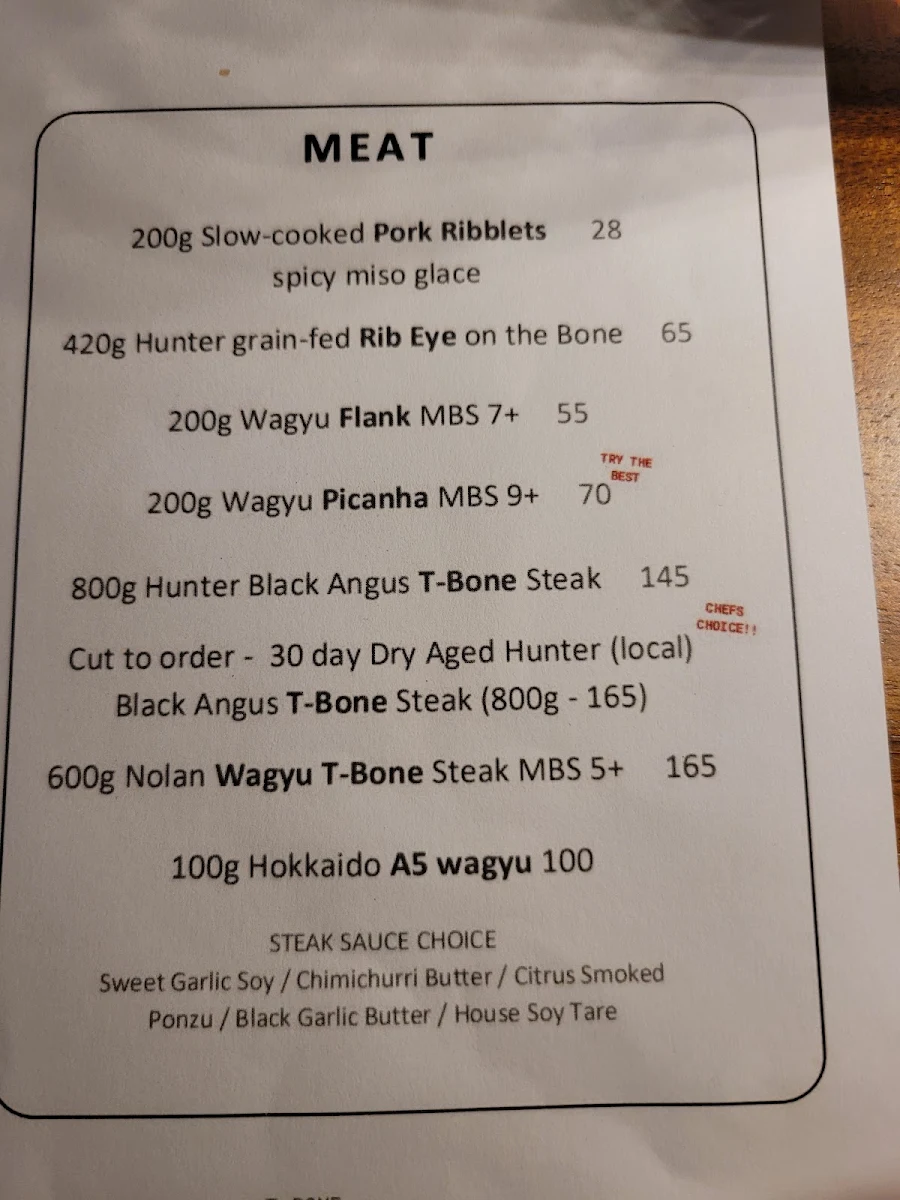 MEAT
200g Slow-cooked Pork Ribblets 28
spicy miso glace
420g Hunter grain-fed Rib Eye on the Bone 65
200g Wagyu Flank MBS 7+ 55
TRY THE
BEST
200g Wagyu Picanha MBS 9+ 70
800g Hunter Black Angus T-Bone Steak 145
CHEFS
CHOICE!!
Cut to order - 30 day Dry Aged Hunter (local)
Black Angus T-Bone Steak (800g - 165)
600g Nolan Wagyu T-Bone Steak MBS 5+ 165
100g Hokkaido A5 wagyu 100
STEAK SAUCE CHOICE
Sweet Garlic Soy / Chimichurri Butter / Citrus Smoked
Ponzu / Black Garlic Butter / House Soy Tare